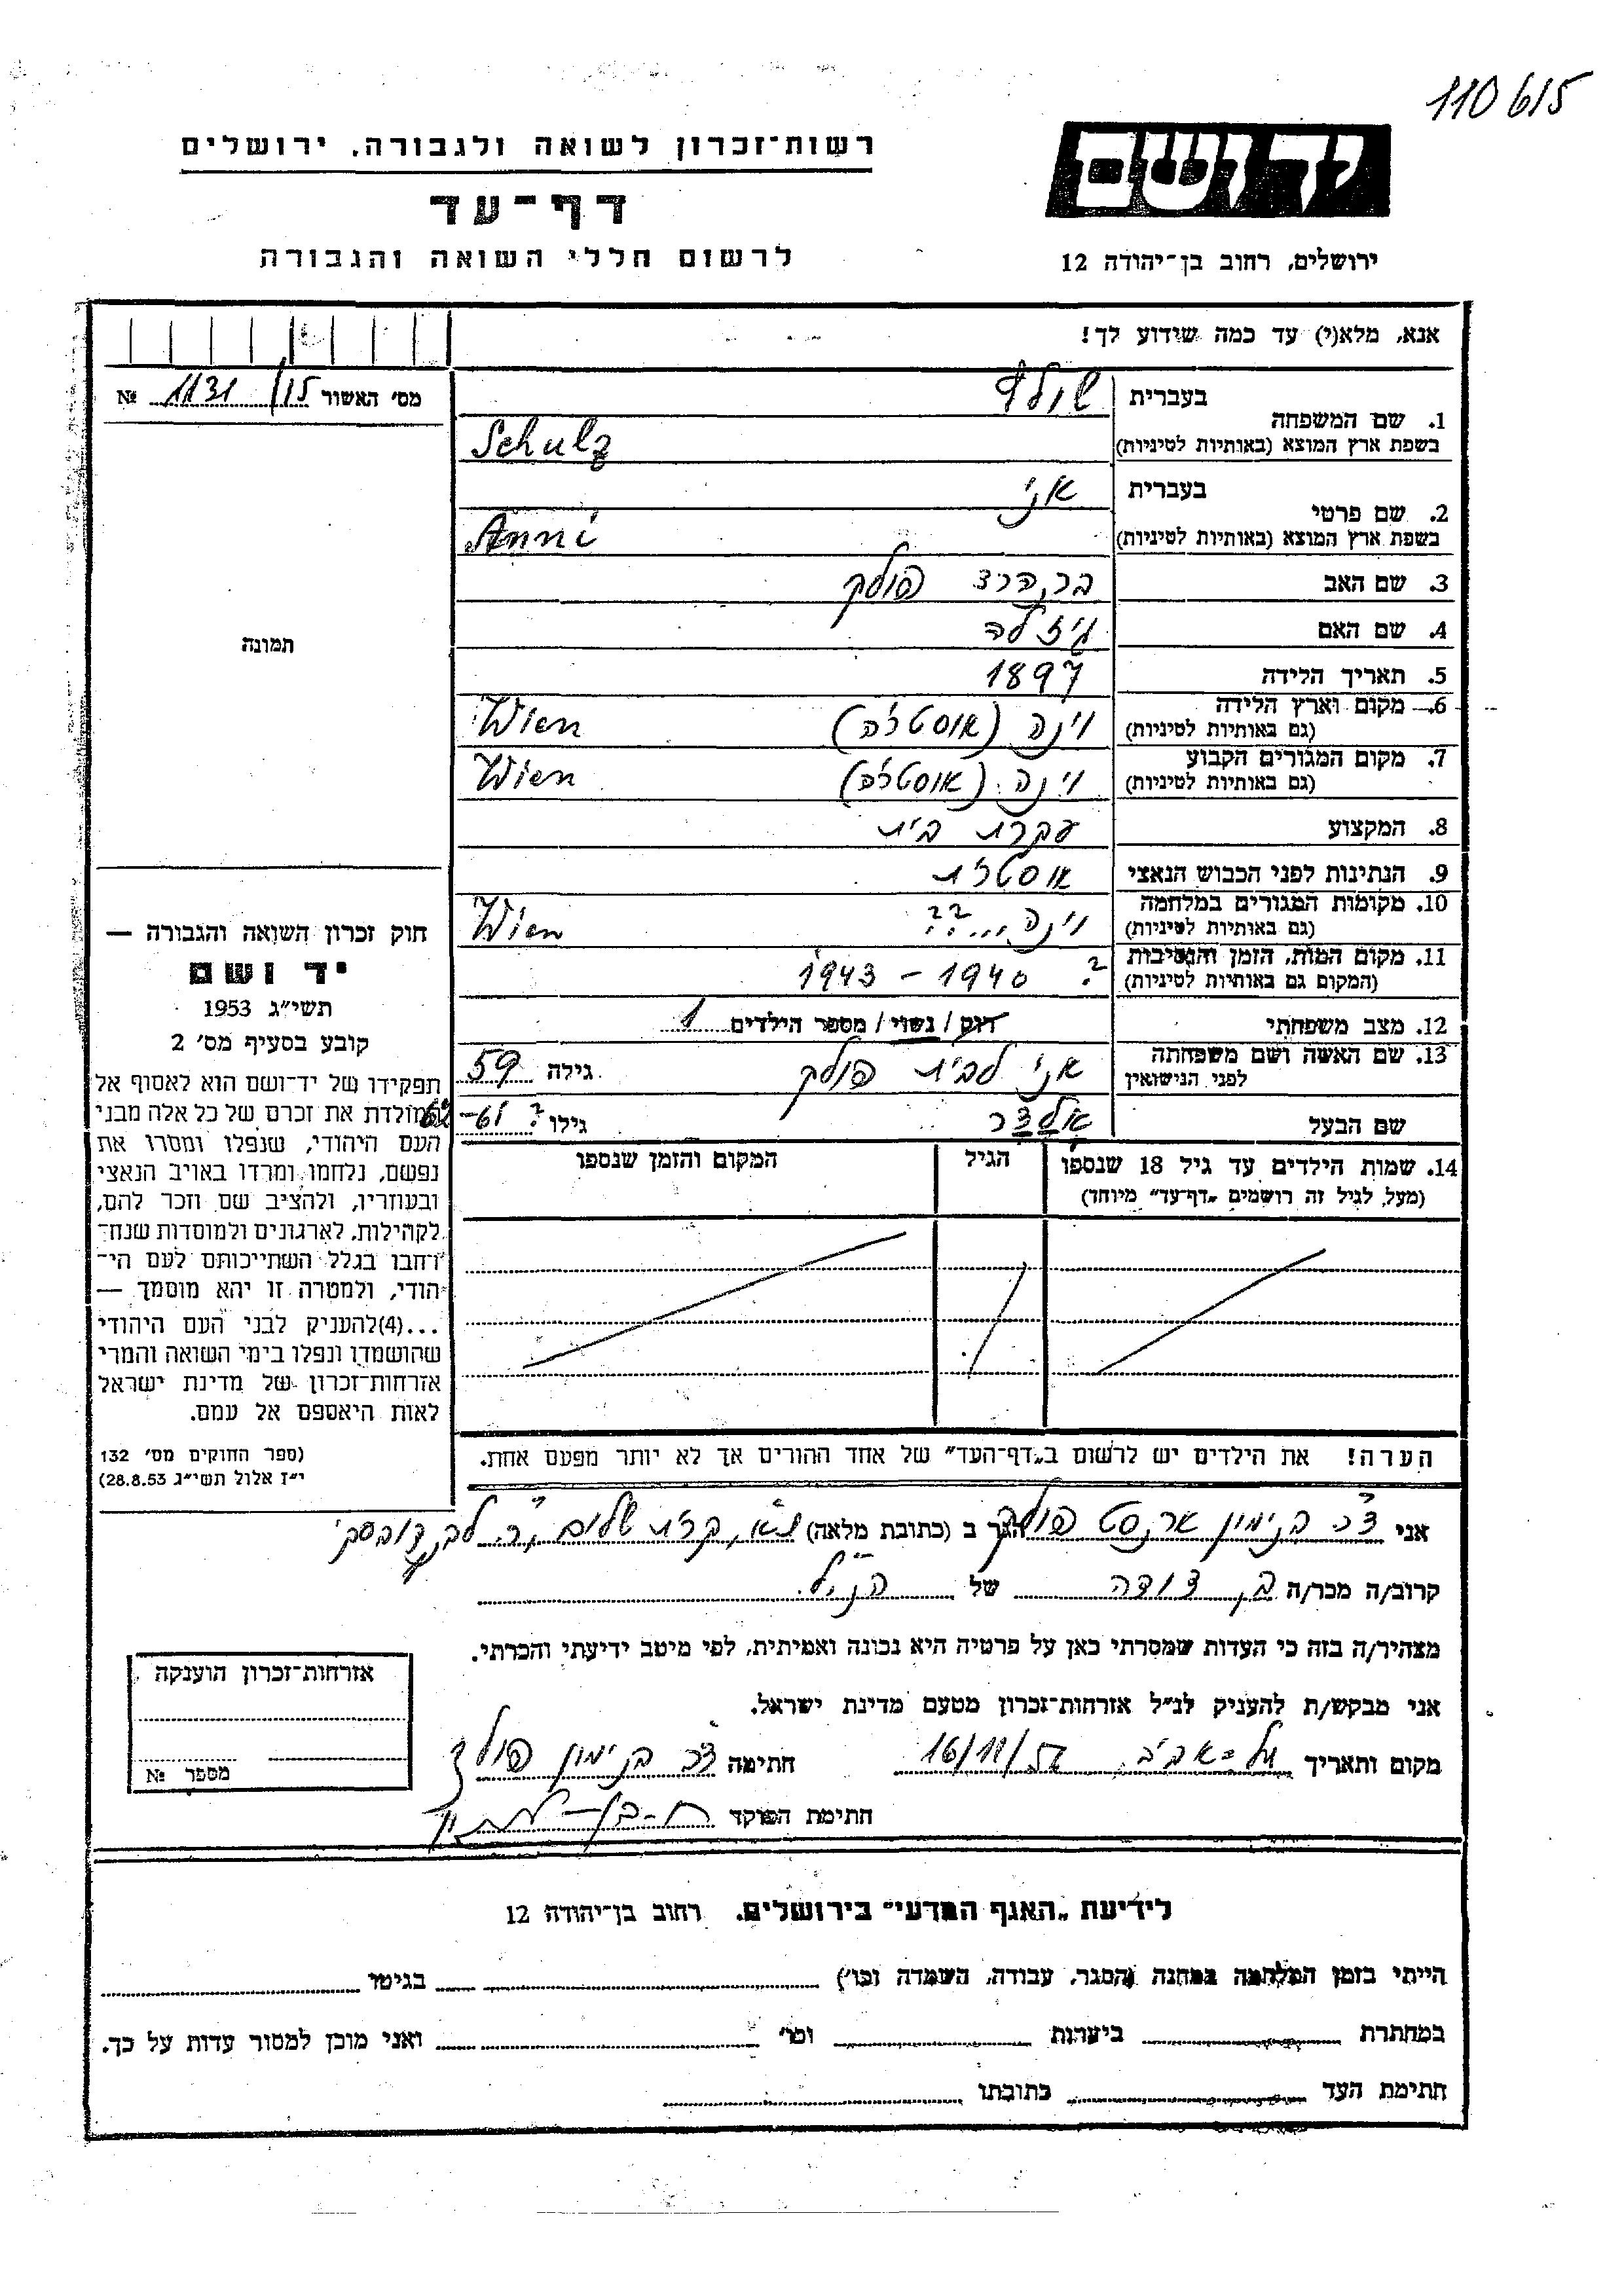 110615
רשות־זכרון לשואה ולגבורה, ירושלים
דף־עד
לרשום חללי השואה והגבורה
יד ושם
ירושלים, רחוב בן־יהודה 12
אנא, מלא(י) עד כמה שידוע לך!
מס' האשור 15/1131 №
תמונה
חוק זכרון השואה והגבורה —
יד ושם
תשי״ג 1953
קובע בסעיף מס' 2
תפקידו של יד־ושם הוא לאסוף אל
המולדת את זכרם של כל אלה מבני
העם היהודי, שנפלו ומסרו את
נפשם, נלחמו ומרדו באויב הנאצי
ובעוזריו, ולהציב שם וזכר להם,
לקהילות, לארגונים ולמוסדות שנח־
רחבו בגלל השתייכותם לעם הי־
הודי, ולמטרה זו יהא מוסמך —
...(4)להעניק לבני העם היהודי
שהושמדו ונפלו בימי השואה והמרי
אזרחות־זכרון של מדינת ישראל
לאות היאספם אל עמם.
(ספר החוקים מס' 132
י״ז אלול תשי״ג 28.8.53)
1. שם המשפחה
בעברית שולץ
בשפת ארץ המוצא (באותיות לטיניות) Schulz
2. שם פרטי
בעברית אני
בשפת ארץ המוצא (באותיות לטיניות) Anni
3. שם האב ברנהרד פולק
4. שם האם גיזלה
5. תאריך הלידה 1897
6. מקום וארץ הלידה וינה (אוסטריה) Wien
(גם באותיות לטיניות)
7. מקום המגורים הקבוע וינה (אוסטריה) Wien
(גם באותיות לטיניות)
8. המקצוע עקרת בית
9. הנתינות לפני הכבוש הנאצי אוסטרית
10. מקומות המגורים במלחמה וינה.....?? Wien
(גם באותיות לטיניות)
11. מקום המות, הזמן והנסיבות ? 1940 – 1943
(המקום גם באותיות לטיניות)
12. מצב משפחתי רווק / נשוי / מספר הילדים 1
13. שם האשה ושם משפחתה אני לבית פולק גילה 59
לפני הנישואין
שם הבעל גילו ? 61–62
14. שמות הילדים עד גיל 18 שנספו הגיל המקום והזמן שנספו
(מעל לגיל זה רושמים „דף־עד״ מיוחד)
הערה! את הילדים יש לרשום ב„דף־העד״ של אחד ההורים אך לא יותר מפעם אחת.
אני ד״ר בנימין ארנסט פולק הגר ב (כתובת מלאה) ת״א, קרית שלום, ר.
קרוב/ה מכר/ה בן דודה של הנ״ל
מצהיר/ה בזה כי העדות שמסרתי כאן על פרטיה היא נכונה ואמיתית, לפי מיטב ידיעתי והכרתי.
אני מבקש/ת להעניק לנ״ל אזרחות־זכרון מטעם מדינת ישראל.
מקום ותאריך תל–אביב 16/11/56 חתימה ד״ר בנימין פולק
חתימת הפוקד
אזרחות־זכרון הוענקה
מספר №
לידיעת „האגף המדעי״ בירושלים. רחוב בן־יהודה 12
הייתי בזמן המלחמה במחנה (הסגר, עבודה, השמדה וכו') בגיטו
במחתרת ביערות וכו' ואני מוכן למסור עדות על כך.
חתימת העד כתובתו